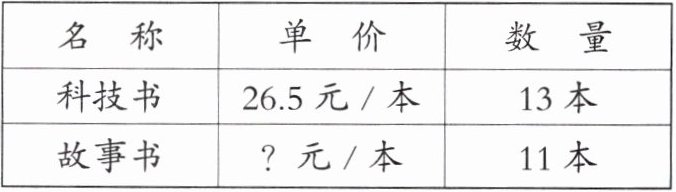 名 称 单 价 数 量
科技书 26.5元/本 13本
故事书 ？元/本 11本